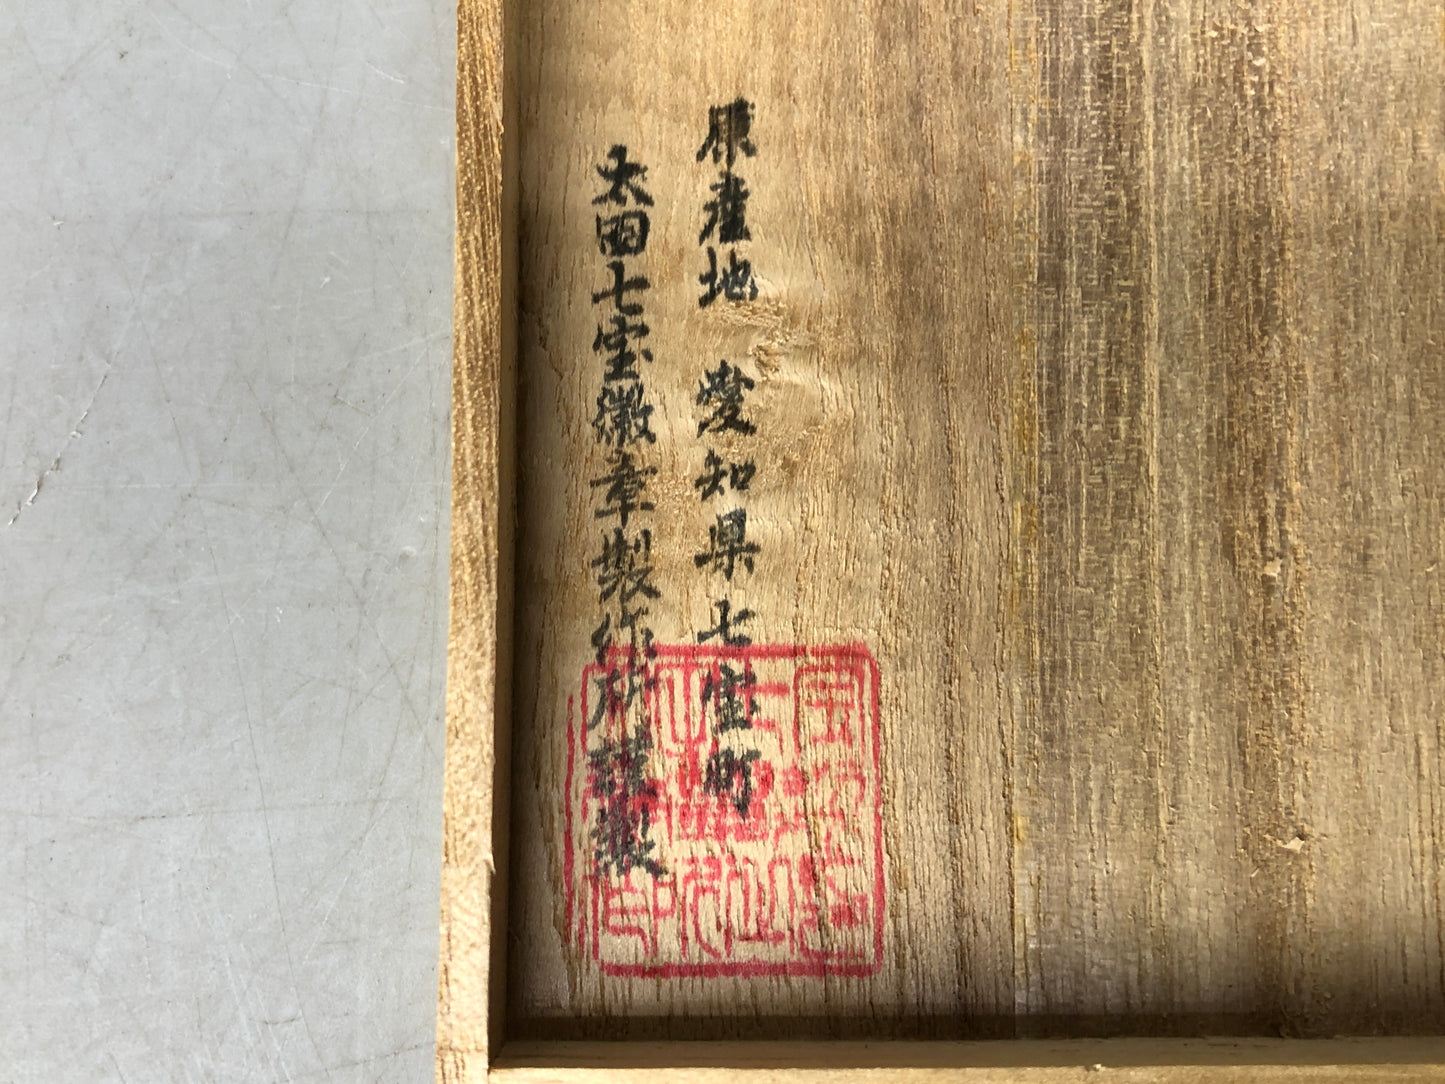 原産地 愛知県七宝町
太田七宝徽章製作所謹製